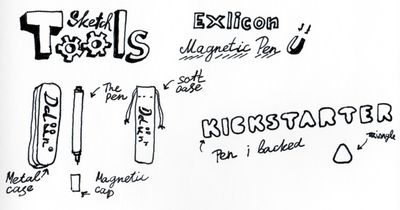 Sketch
Tools
Exlicon
Magnetic Pen
The
pen
soft
case
Metal
case
Magnetic
cap
KICKSTARTER
Pen i backed
triangle